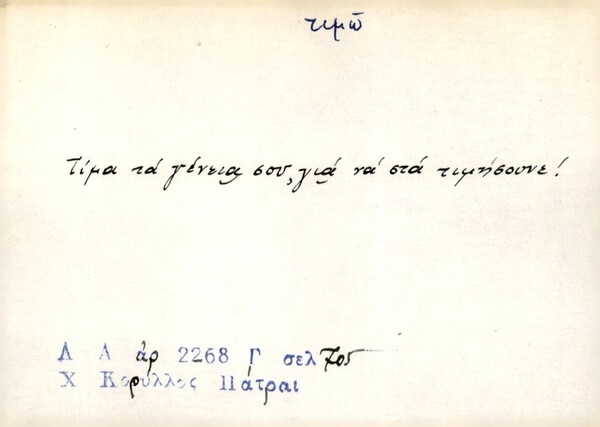 τιμῶ
Τίμα τά γένεια σου, γιά νά στά τιμήσουνε!
Λ Α ἀρ 2268 Γ σελ 705
Χ Κορύλλος Πάτραι